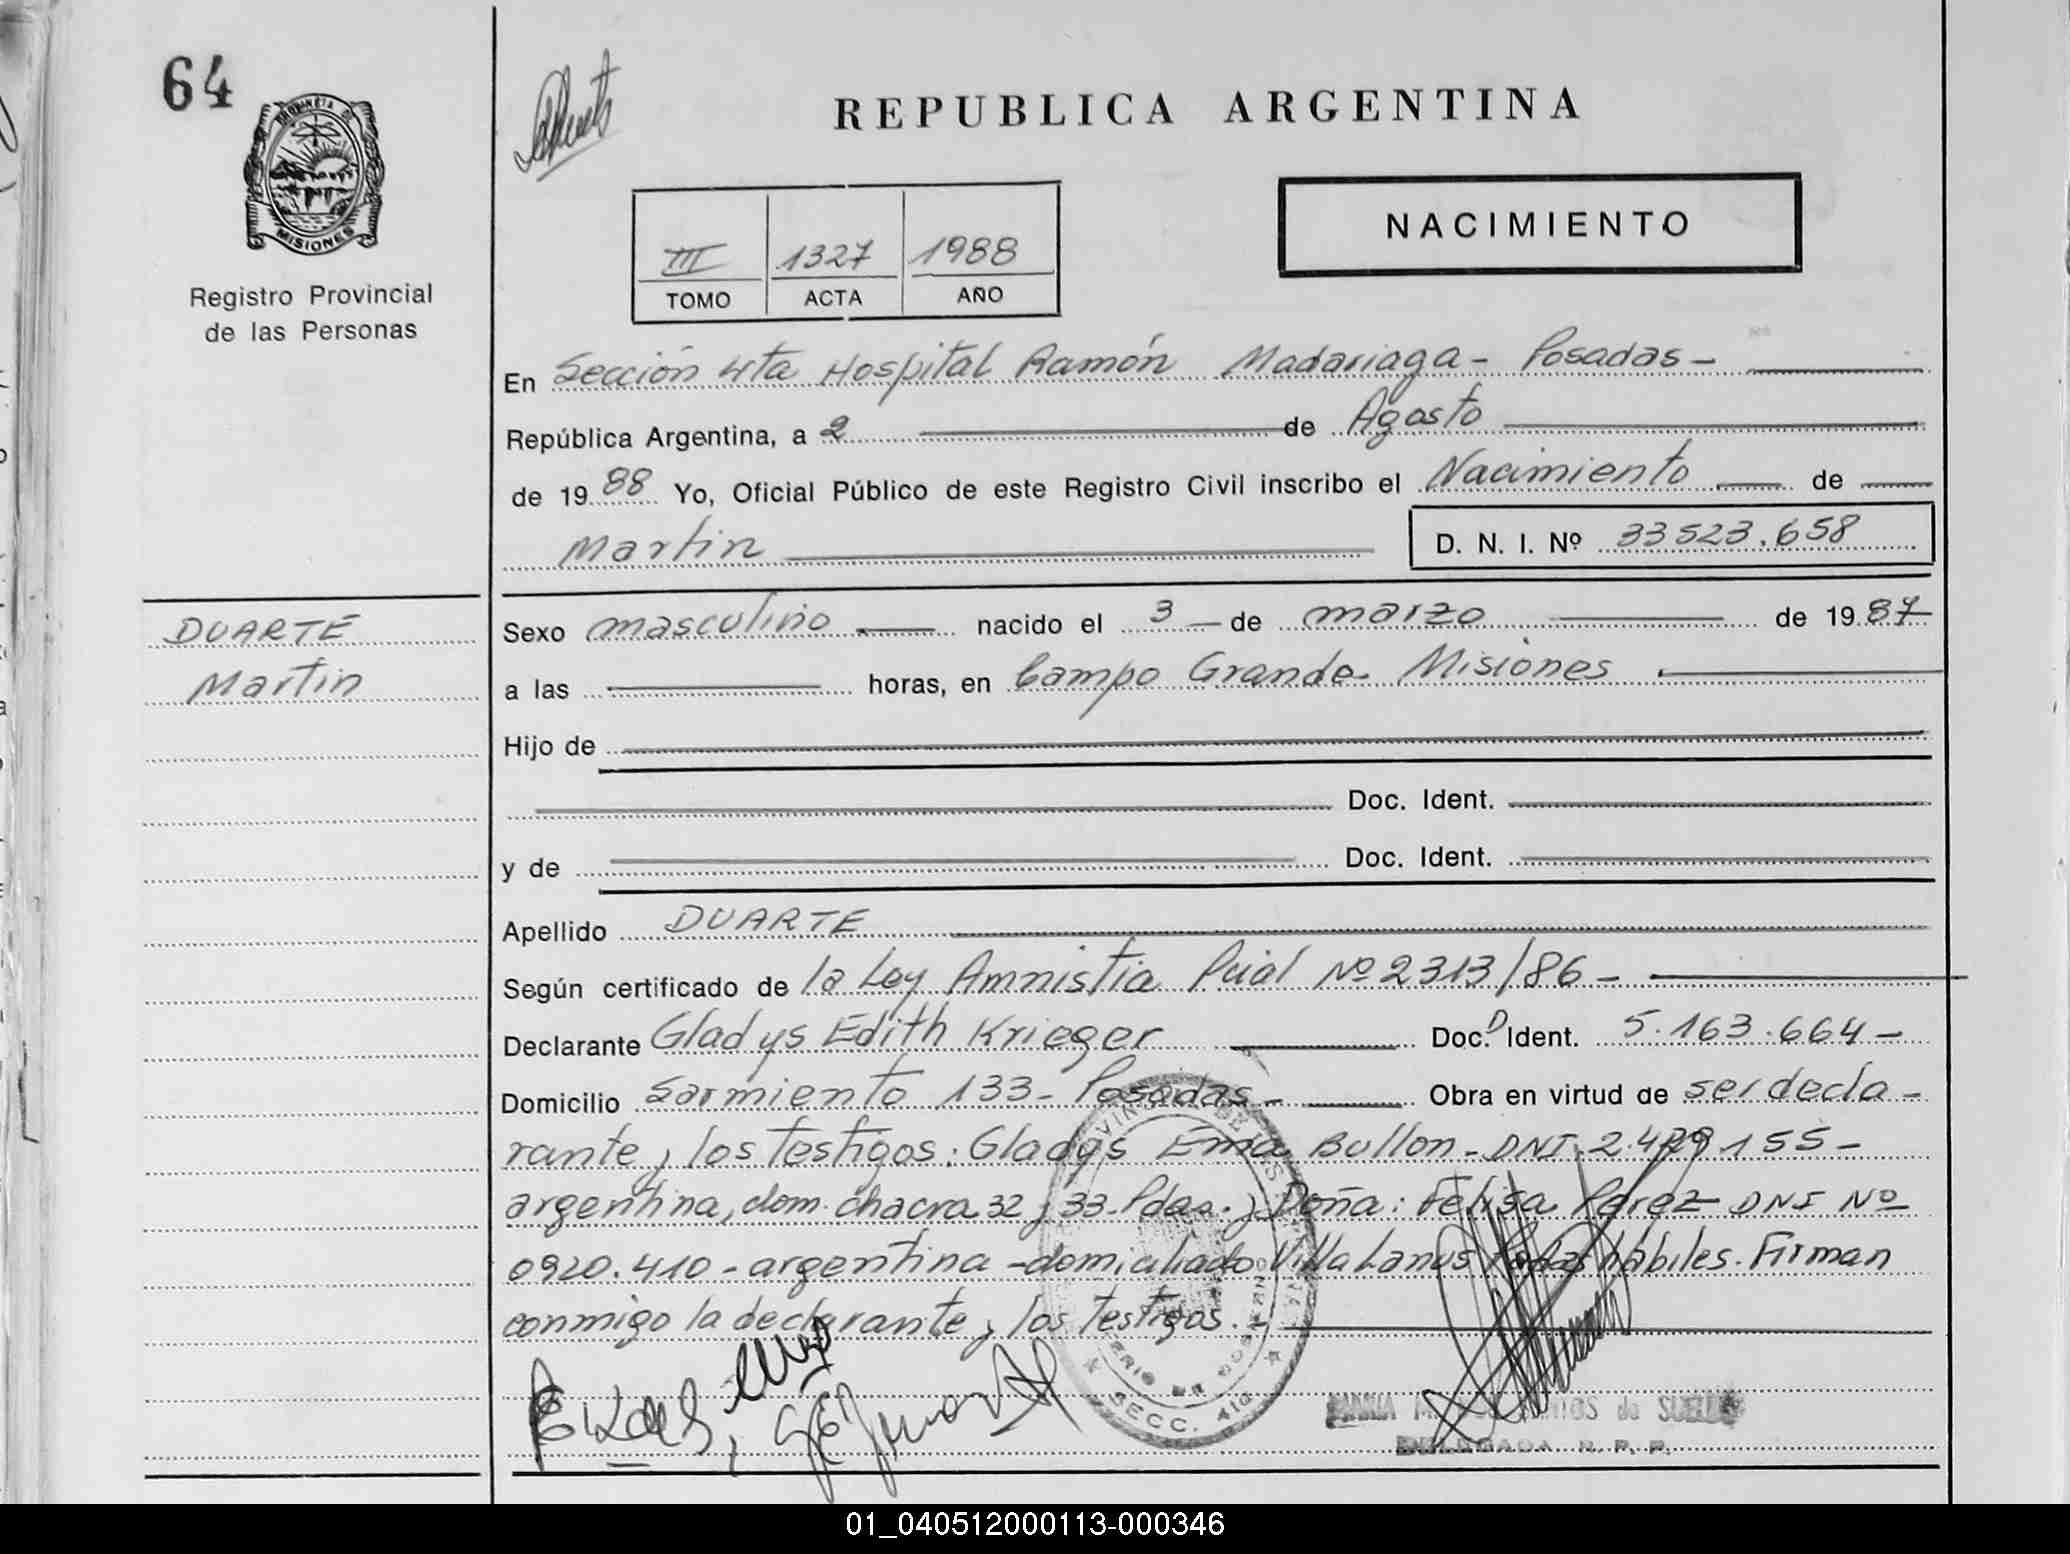 64
PROVINCIA DE
MISIONES
Registro Provincial
de las Personas
DUARTE
Martin
REPUBLICA ARGENTINA
NACIMIENTO
III 1327 1988
TOMO ACTA AÑO
En Sección 4ta Hospital Ramón Madariaga - Posadas -
República Argentina, a 2 de Agosto
de 19 88 Yo, Oficial Público de este Registro Civil inscribo el Nacimiento de
Martin D. N. I. Nº 33523.658
Sexo masculino nacido el 3 de marzo de 19 87
a las horas, en Campo Grande - Misiones
Hijo de
Doc. Ident.
y de Doc. Ident.
Apellido DUARTE
Según certificado de la Ley Amnistia Pcial Nº 2313/86 -
Declarante Gladys Edith Krieger Doc. Ident. 5.163.664 -
Domicilio Sarmiento 133 - Posadas - Obra en virtud de ser decla -
rante y los testigos: Gladys Ema Bullon - DNI 2.419.155 -
argentina, dom. chacra 32 y 33 - Pdas. y Doña: Felisa Perez DNI Nº
0920.410 - argentina - domiciliado Villa Lanus hábiles. Firman
conmigo la declarante y los testigos. -
SECC. 4ta
DELEGADA R. P. P.
01_040512000113-000346